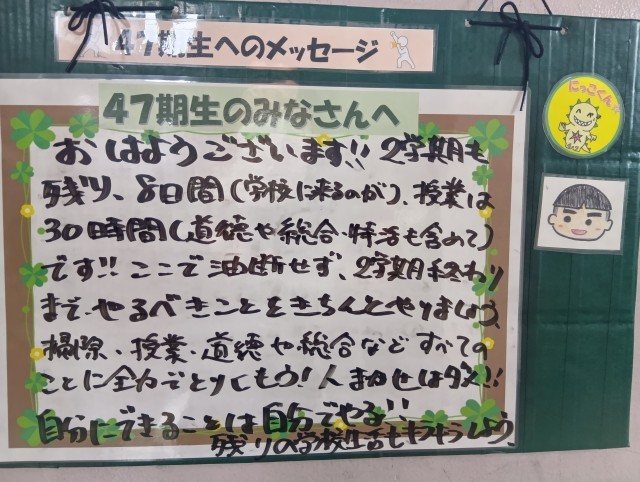 47期生へのメッセージ
47期生のみなさんへ
おはようございます!! 2学期も
残り、8日間(学校に来るのが)、授業は
30時間(道徳や総合・特活も含めて)
です!! ここで油断せず、2学期終わり
まで、やるべきことをきちんとやりましょう。
掃除、授業、道徳や総合などすべての
ことに全力でとりくもう! 人まかせはダメ!!
自分にできることは自分でやる!!
残りの学校生活もキラキラしよう。
にっこくん